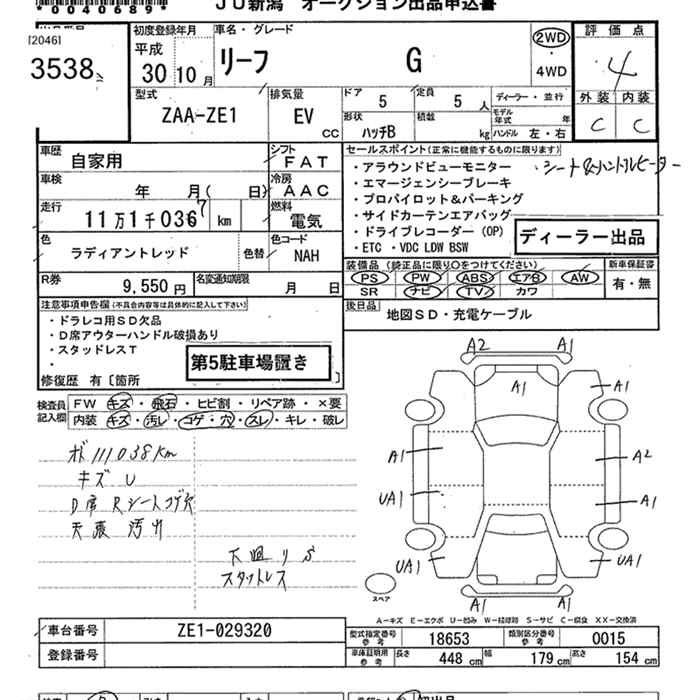 *0040689*
JU新潟 オークション出品申込書
[20461
3538
初度登録年月
平成
30年 10月
車名・グレード
リーフ G
2WD
・
4WD
評価点
4
外装 内装
C C
型式
ZAA-ZE1
排気量
EV
CC
ドア
5
定員
5 人
形状
ハッチB
積載
kg
ディーラー・並行
モデル年式 年
ハンドル 左・右
車歴
自家用
シフト
FAT
車検
年 月( 日)
冷房
AAC
走行
11万1千036 7 km
燃料
電気
色
ラディアントレッド
色替
色コード
NAH
R券
9,550円
名変通知期限
月 日
セールスポイント(正常に機能するものに限ります)
・アラウンドビューモニター ・シート&ハンドルヒーター
・エマージェンシーブレーキ
・プロパイロット&パーキング
・サイドカーテンエアバッグ
・ドライブレコーダー(OP)
・ETC ・VDC LDW BSW
ディーラー出品
装備品(純正品に限り○をつけてください)
PS PW ABS エアB AW
SR ナビ TV カワ
新車保証書
有・無
後日品
地図SD・充電ケーブル
注意事項申告欄(不具合内容等は具体的に記入して下さい)
・ドラレコ用SD欠品
・D席アウターハンドル破損あり
・スタッドレスT
・
第5駐車場置き
修復歴 有[箇所 ]
検査員記入欄
FW キズ・飛石・ヒビ割・リペア跡・×要
内装 キズ・汚レ・コゲ・穴・スレ・キレ・破レ
111038Km
キズ U
D席 Rシートコゲ穴
天張 汚レ
スタットレス
A2 A1
A1 A1
A1 A2
UA1 A1
UA1 UA1
A1 A1
スペア
A-キズ E-エクボ U-凹み W-補修跡 S-サビ C-腐食 XX-交換済
車台番号
ZE1-029320
登録番号
型式指定番号 参考
18653
類別区分番号 参考
0015
車庫証明用 参考
長さ 448 cm 幅 179 cm 高さ 154 cm